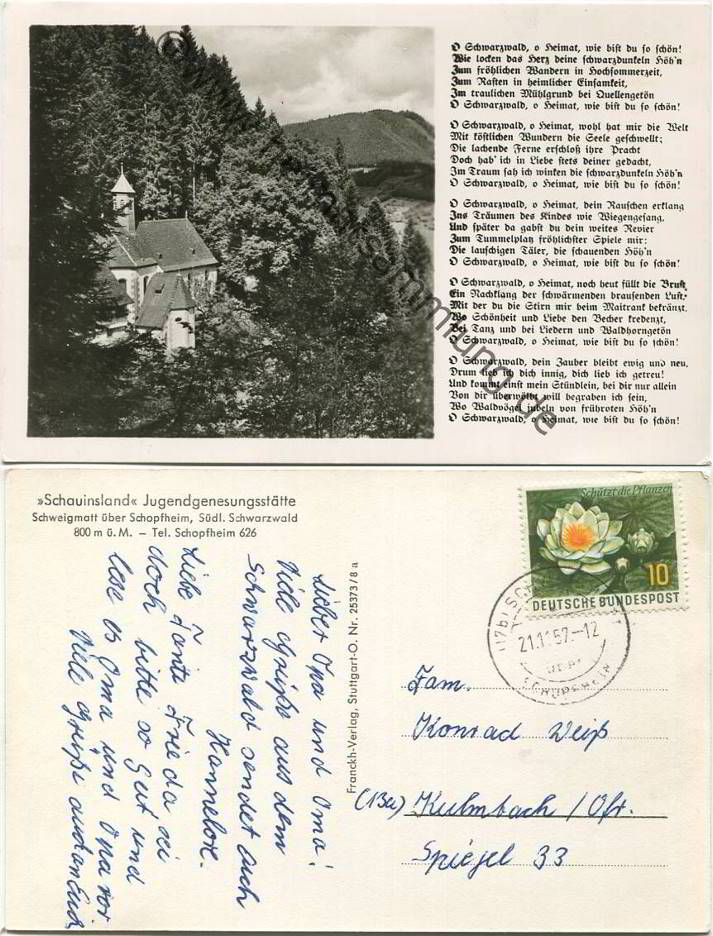 O Schwarzwald, o Heimat, wie bist du so schön!
Wie locken das Herz deine schwarzdunkeln Höh'n
Zum fröhlichen Wandern in Hochsommerzeit,
Zum Rasten in heimlicher Einsamkeit,
Im traulichen Mühlgrund bei Quellengetön
O Schwarzwald, o Heimat, wie bist du so schön!
O Schwarzwald, o Heimat, wohl hat mir die Welt
Mit köstlichen Wundern die Seele geschwellt;
Die lachende Ferne erschloß ihre Pracht
Doch hab' ich in Liebe stets deiner gedacht,
Im Traum sah ich winken die schwarzdunkeln Höh'n
O Schwarzwald, o Heimat, wie bist du so schön!
O Schwarzwald, o Heimat, dein Rauschen erklang
Ins Träumen des Kindes wie Wiegengesang.
Und später da gabst du dein weites Revier
Zum Tummelplatz fröhlichster Spiele mir:
Die lauschigen Täler, die schauenden Höh'n
O Schwarzwald, o Heimat, wie bist du so schön!
O Schwarzwald, o Heimat, noch heut füllt die Brust
Ein Nachklang der schwärmenden brausenden Lust,
Mit der du die Stirn mir beim Maitrank bekränzt,
Wo Schönheit und Liebe den Becher kredenzt,
Bei Tanz und bei Liedern und Waldhorngetön
O Schwarzwald, o Heimat, wie bist du so schön!
O Schwarzwald, dein Zauber bleibt ewig und neu,
Drum lieb ich dich innig, dich lieb ich getreu!
Und kommt einst mein Stündlein, bei dir nur allein
Von dir überwölbt will begraben ich sein,
Wo Waldvögel jubeln von frühroten Höh'n
O Schwarzwald, o Heimat, wie bist du so schön!
»Schauinsland« Jugendgenesungsstätte
Schweigmatt über Schopfheim, Südl. Schwarzwald
800 m ü. M. – Tel. Schopfheim 626
Lieber Opa und Oma!
Viele Grüße aus dem
Schwarzwald sendet euch
Hannelore.
Liebe Tante Frieda sei
doch bitte so gut und
lese es Oma und Opa vor
Viele Grüße auch an Euch
Franckh-Verlag, Stuttgart-O, Nr. 25373/8 a
Schützt die Pflanzen
10
DEUTSCHE BUNDESPOST
21.11.57.-12
Fam.
Konrad Weiß
(13a) Kulmbach / Ofr.
Spiegel 33